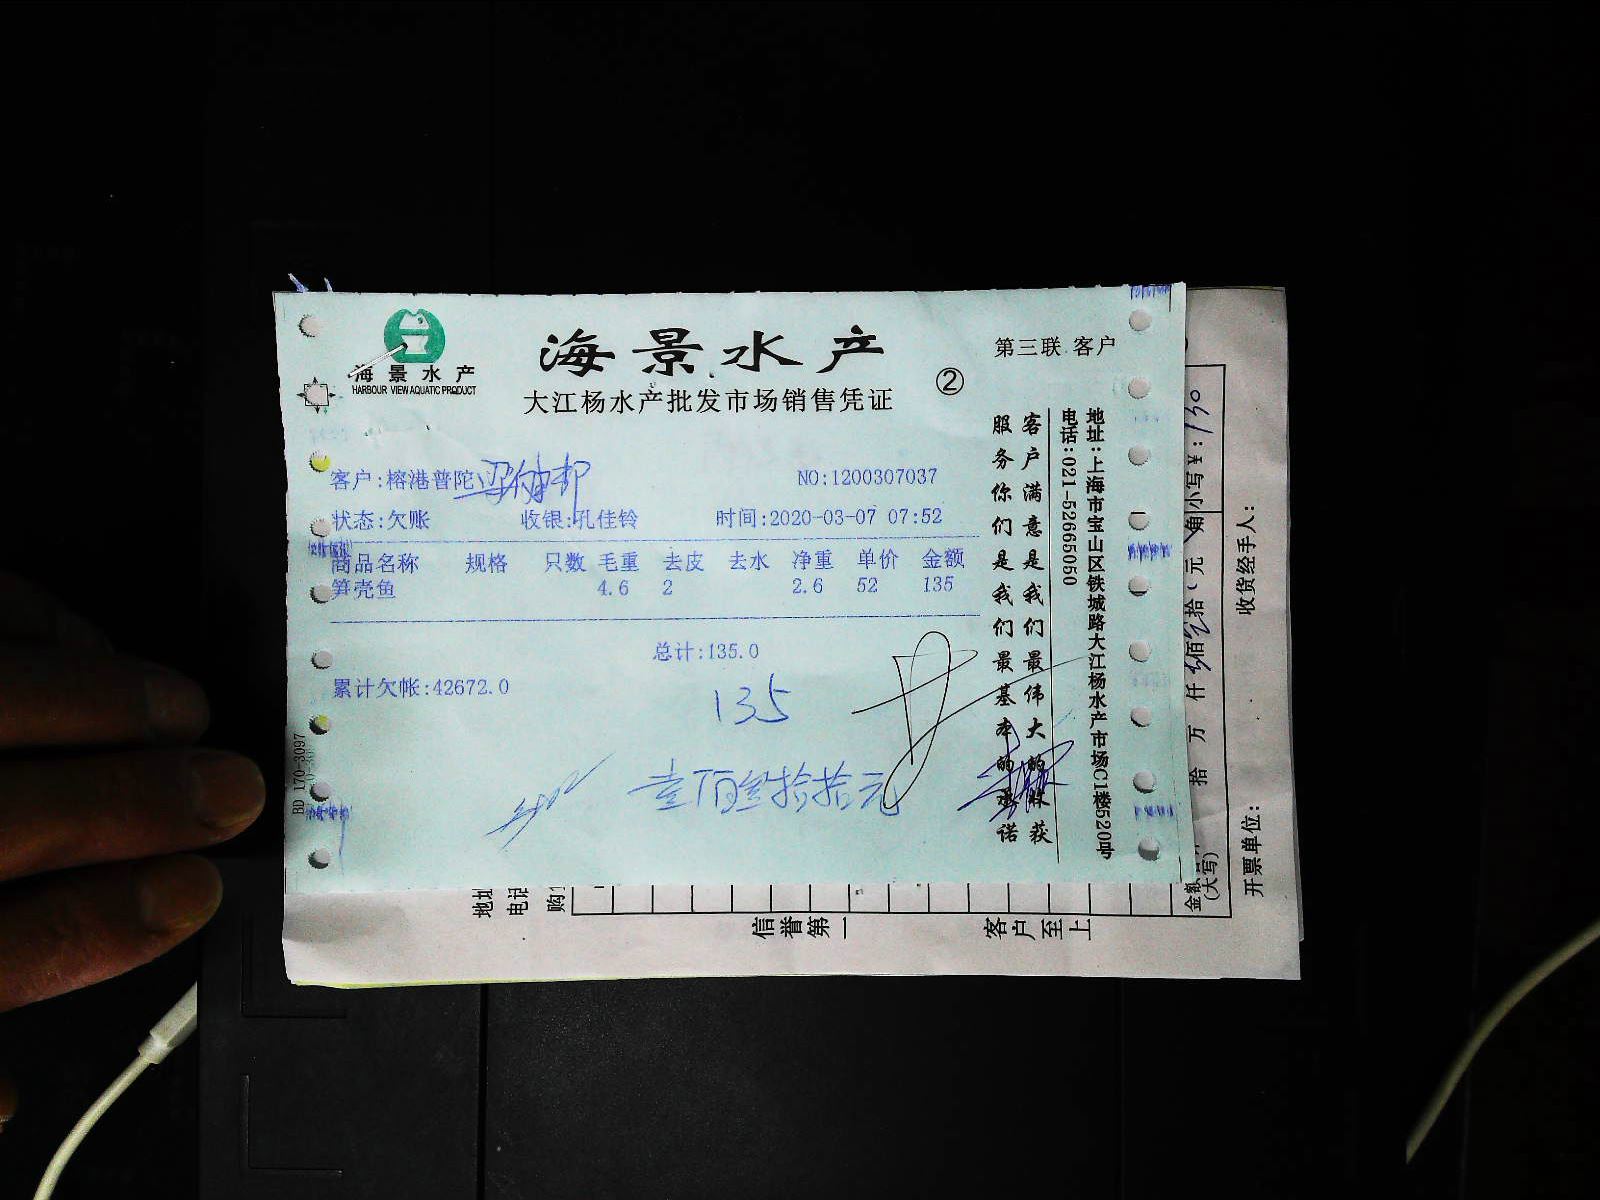 海景水产
HARBOUR VIEW AQUATIC PRODUCT
海景水产
大江杨水产批发市场销售凭证
②
第三联 客户
客户:榕港普陀
NO:1200307037
状态:欠账 收银:孔佳铃 时间:2020-03-07 07:52
商品名称 规格 只数 毛重 去皮 去水 净重 单价 金额
笋壳鱼 4.6 2 2.6 52 135
总计:135.0
累计欠帐:42672.0
135
客户满意是我们最伟大的收获
服务你们是我们最基本的承诺
地址:上海市宝山区铁城路大江杨水产市场C1楼520号
电话:021-52665050
BD 170-3097
小写¥:130
拾 万 仟 佰 拾 元 角
(大写)
收货经手人:
开票单位:
地址
电话
购
信誉第一
客户至上